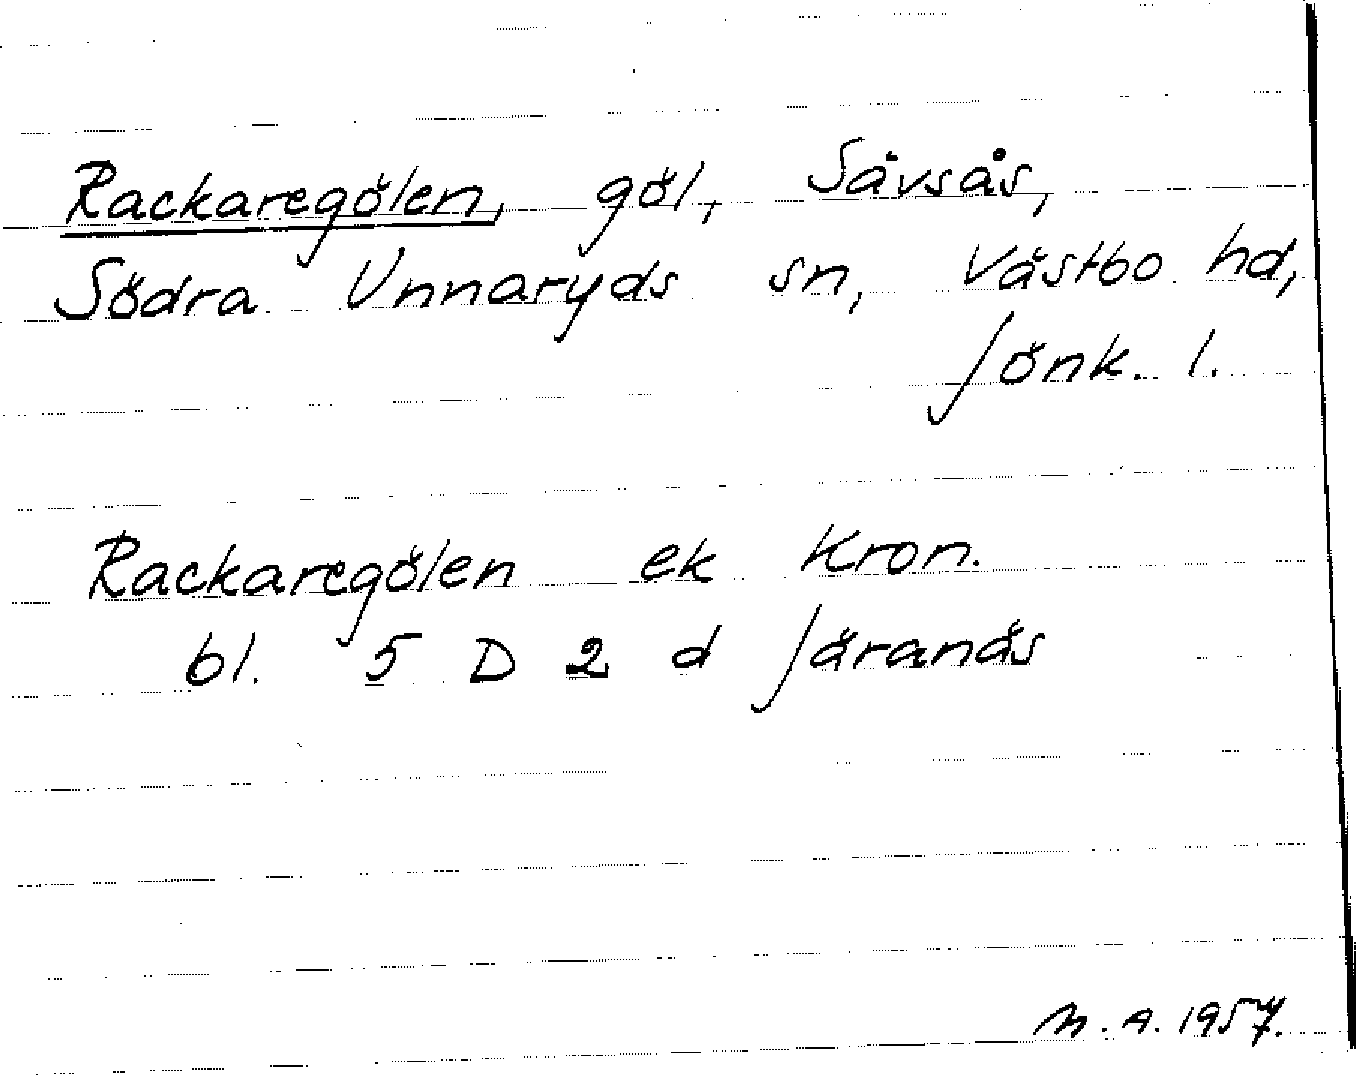 Rackaregölen, göl, Sävsås,
Södra Unnaryds sn, Västbo hd,
Jönk. l.
Rackaregölen ek Kron.
bl. 5 D 2 d Järanäs
M. A. 1957.